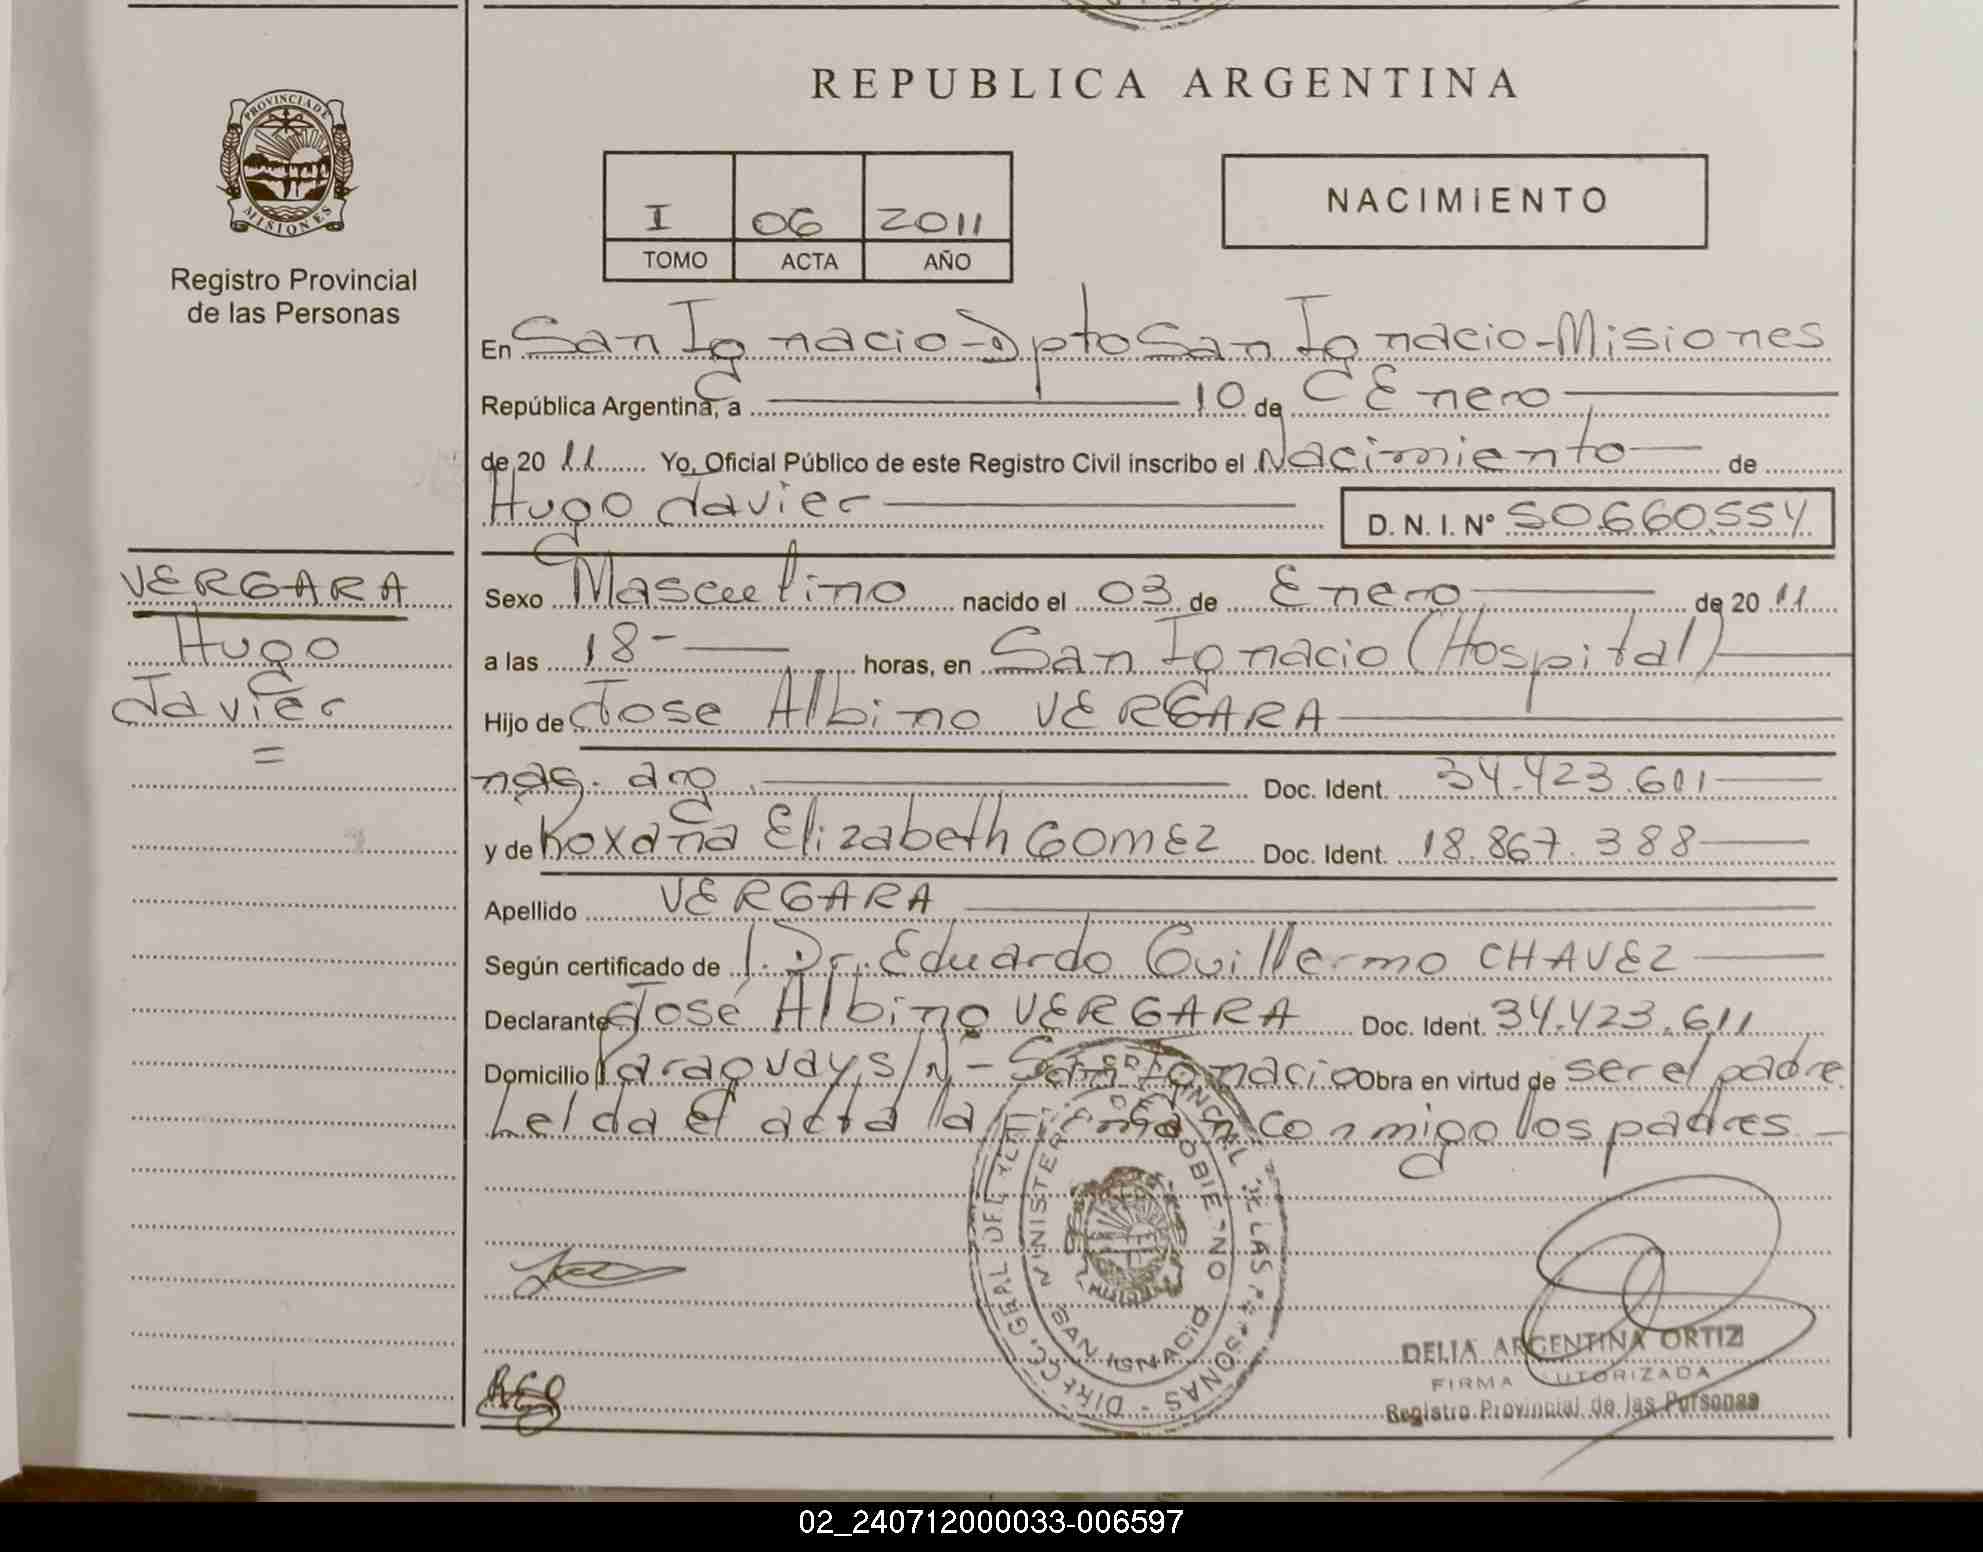 PROVINCIA DE
MISIONES
Registro Provincial
de las Personas
REPUBLICA ARGENTINA
I 06 2011
TOMO ACTA AÑO
NACIMIENTO
En San Ignacio - Dpto San Ignacio - Misiones
República Argentina, a 10 de Enero
de 20 11 Yo, Oficial Público de este Registro Civil inscribo el Nacimiento de
Hugo Javier D. N. I. N° 50.660.554
VERGARA
Hugo
Javier
=
Sexo Masculino nacido el 03 de Enero de 20 11
a las 18- horas, en San Ignacio (Hospital)
Hijo de Jose Albino VERGARA
nac. arg. Doc. Ident. 34.423.601
y de Roxana Elizabeth GOMEZ Doc. Ident. 18.867.388
Apellido VERGARA
Según certificado de Dr. Eduardo Guillermo CHAVEZ
Declarante José Albino VERGARA Doc. Ident. 34.423.611
Domicilio Paraguay S/N - San Ignacio Obra en virtud de ser el padre
Leida el acta la Firman conmigo los padres -
DIRECC. GRAL DEL PROVINCIAL DE LAS PERSONAS
MINISTERIO DE GOBIERNO
SAN IGNACIO
DELIA ARGENTINA ORTIZ
FIRMA AUTORIZADA
Registro Provincial de las Personas
02_240712000033-006597